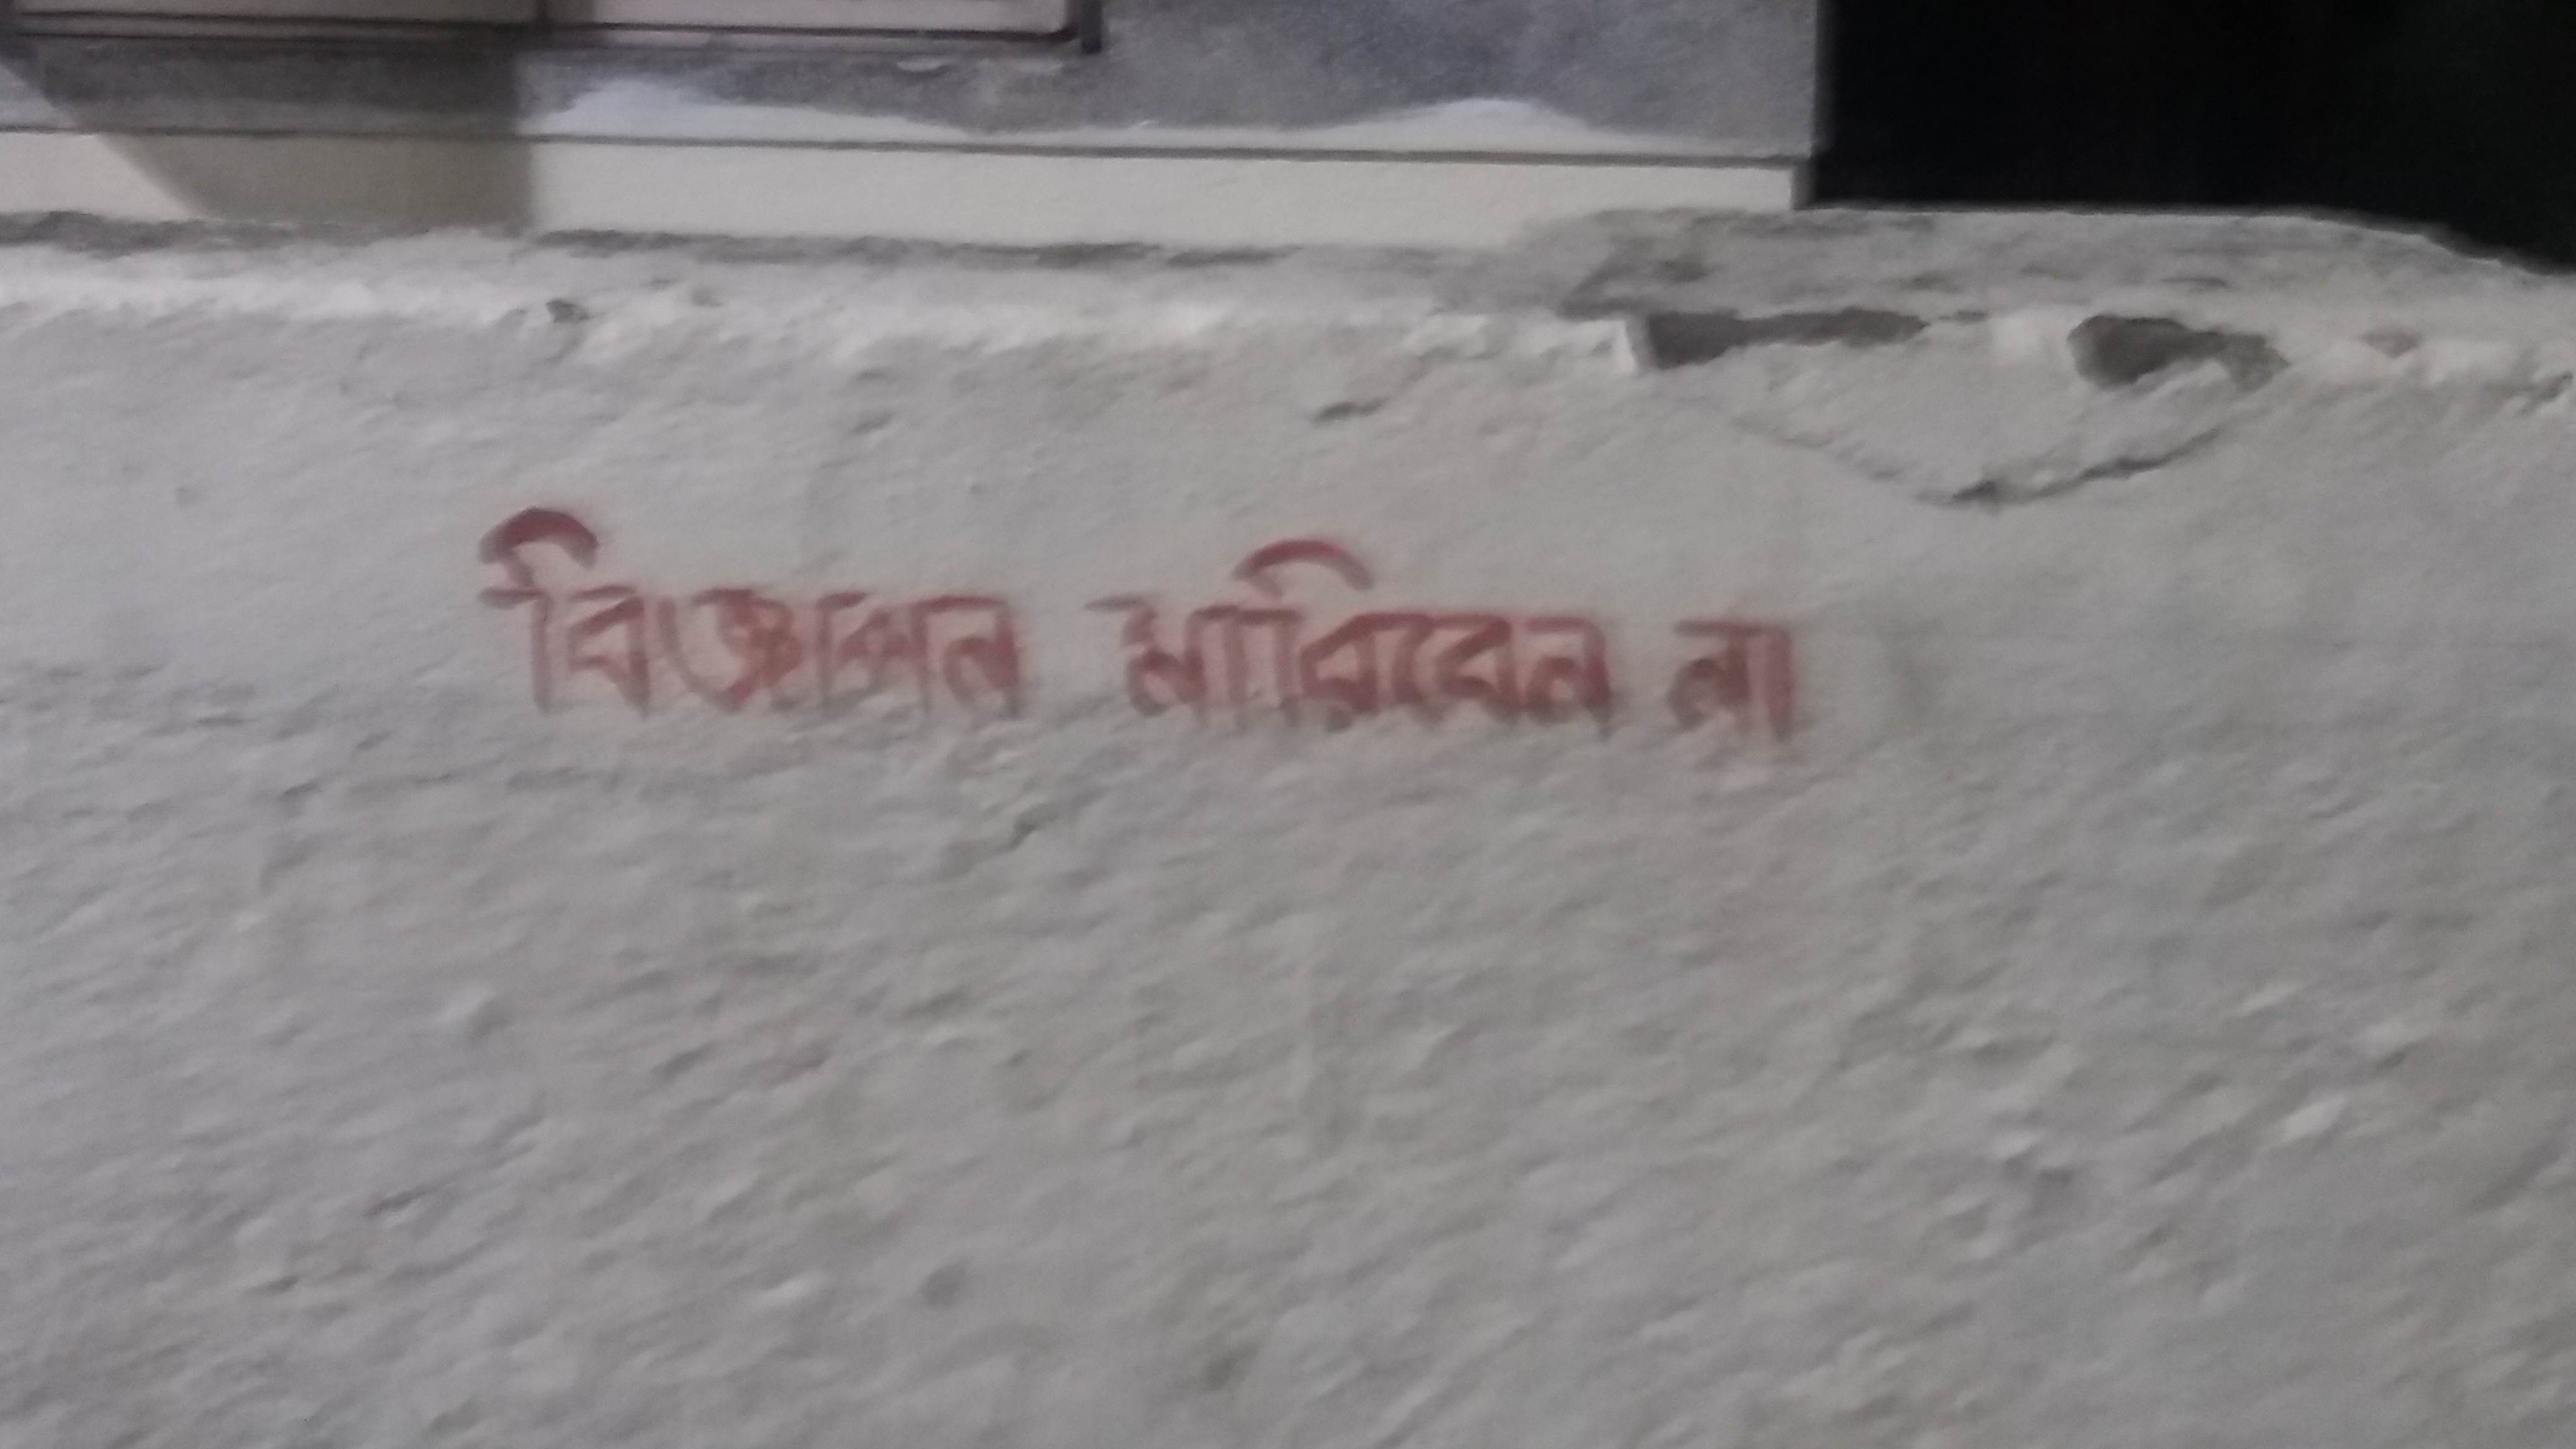 বিজ্ঞাপন মারিবেন না